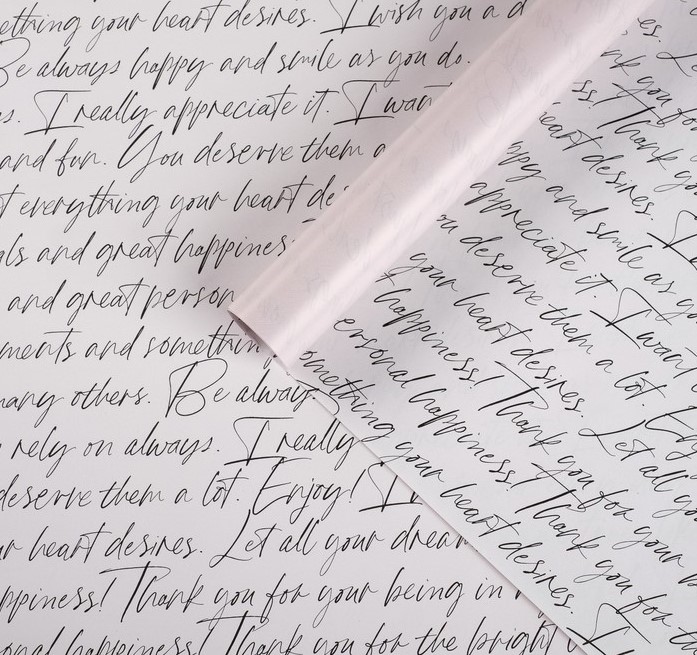 ething your heart desires. I wish you a d
Be always happy and smile as you do.
s. I really appreciate it. I want
and fun. You deserve them a
t everything your heart des
ls and great happines
and great person
ments and something
many others. Be always
rely on always. I really
deserve them a lot. Enjoy! I
r heart desires. Let all your dream
ppiness! Thank you for your being in
onal happiness! Thank you for the bright
es. L
nk you for
ss! Thank yo
heart desires. I
ppy and smile as yo
appreciate it. I want
ou deserve them a lot. Enj
your heart desires. Let all yo
happiness! Thank you for your b
ersonal happiness! Thank you for th
omething your heart desires. I